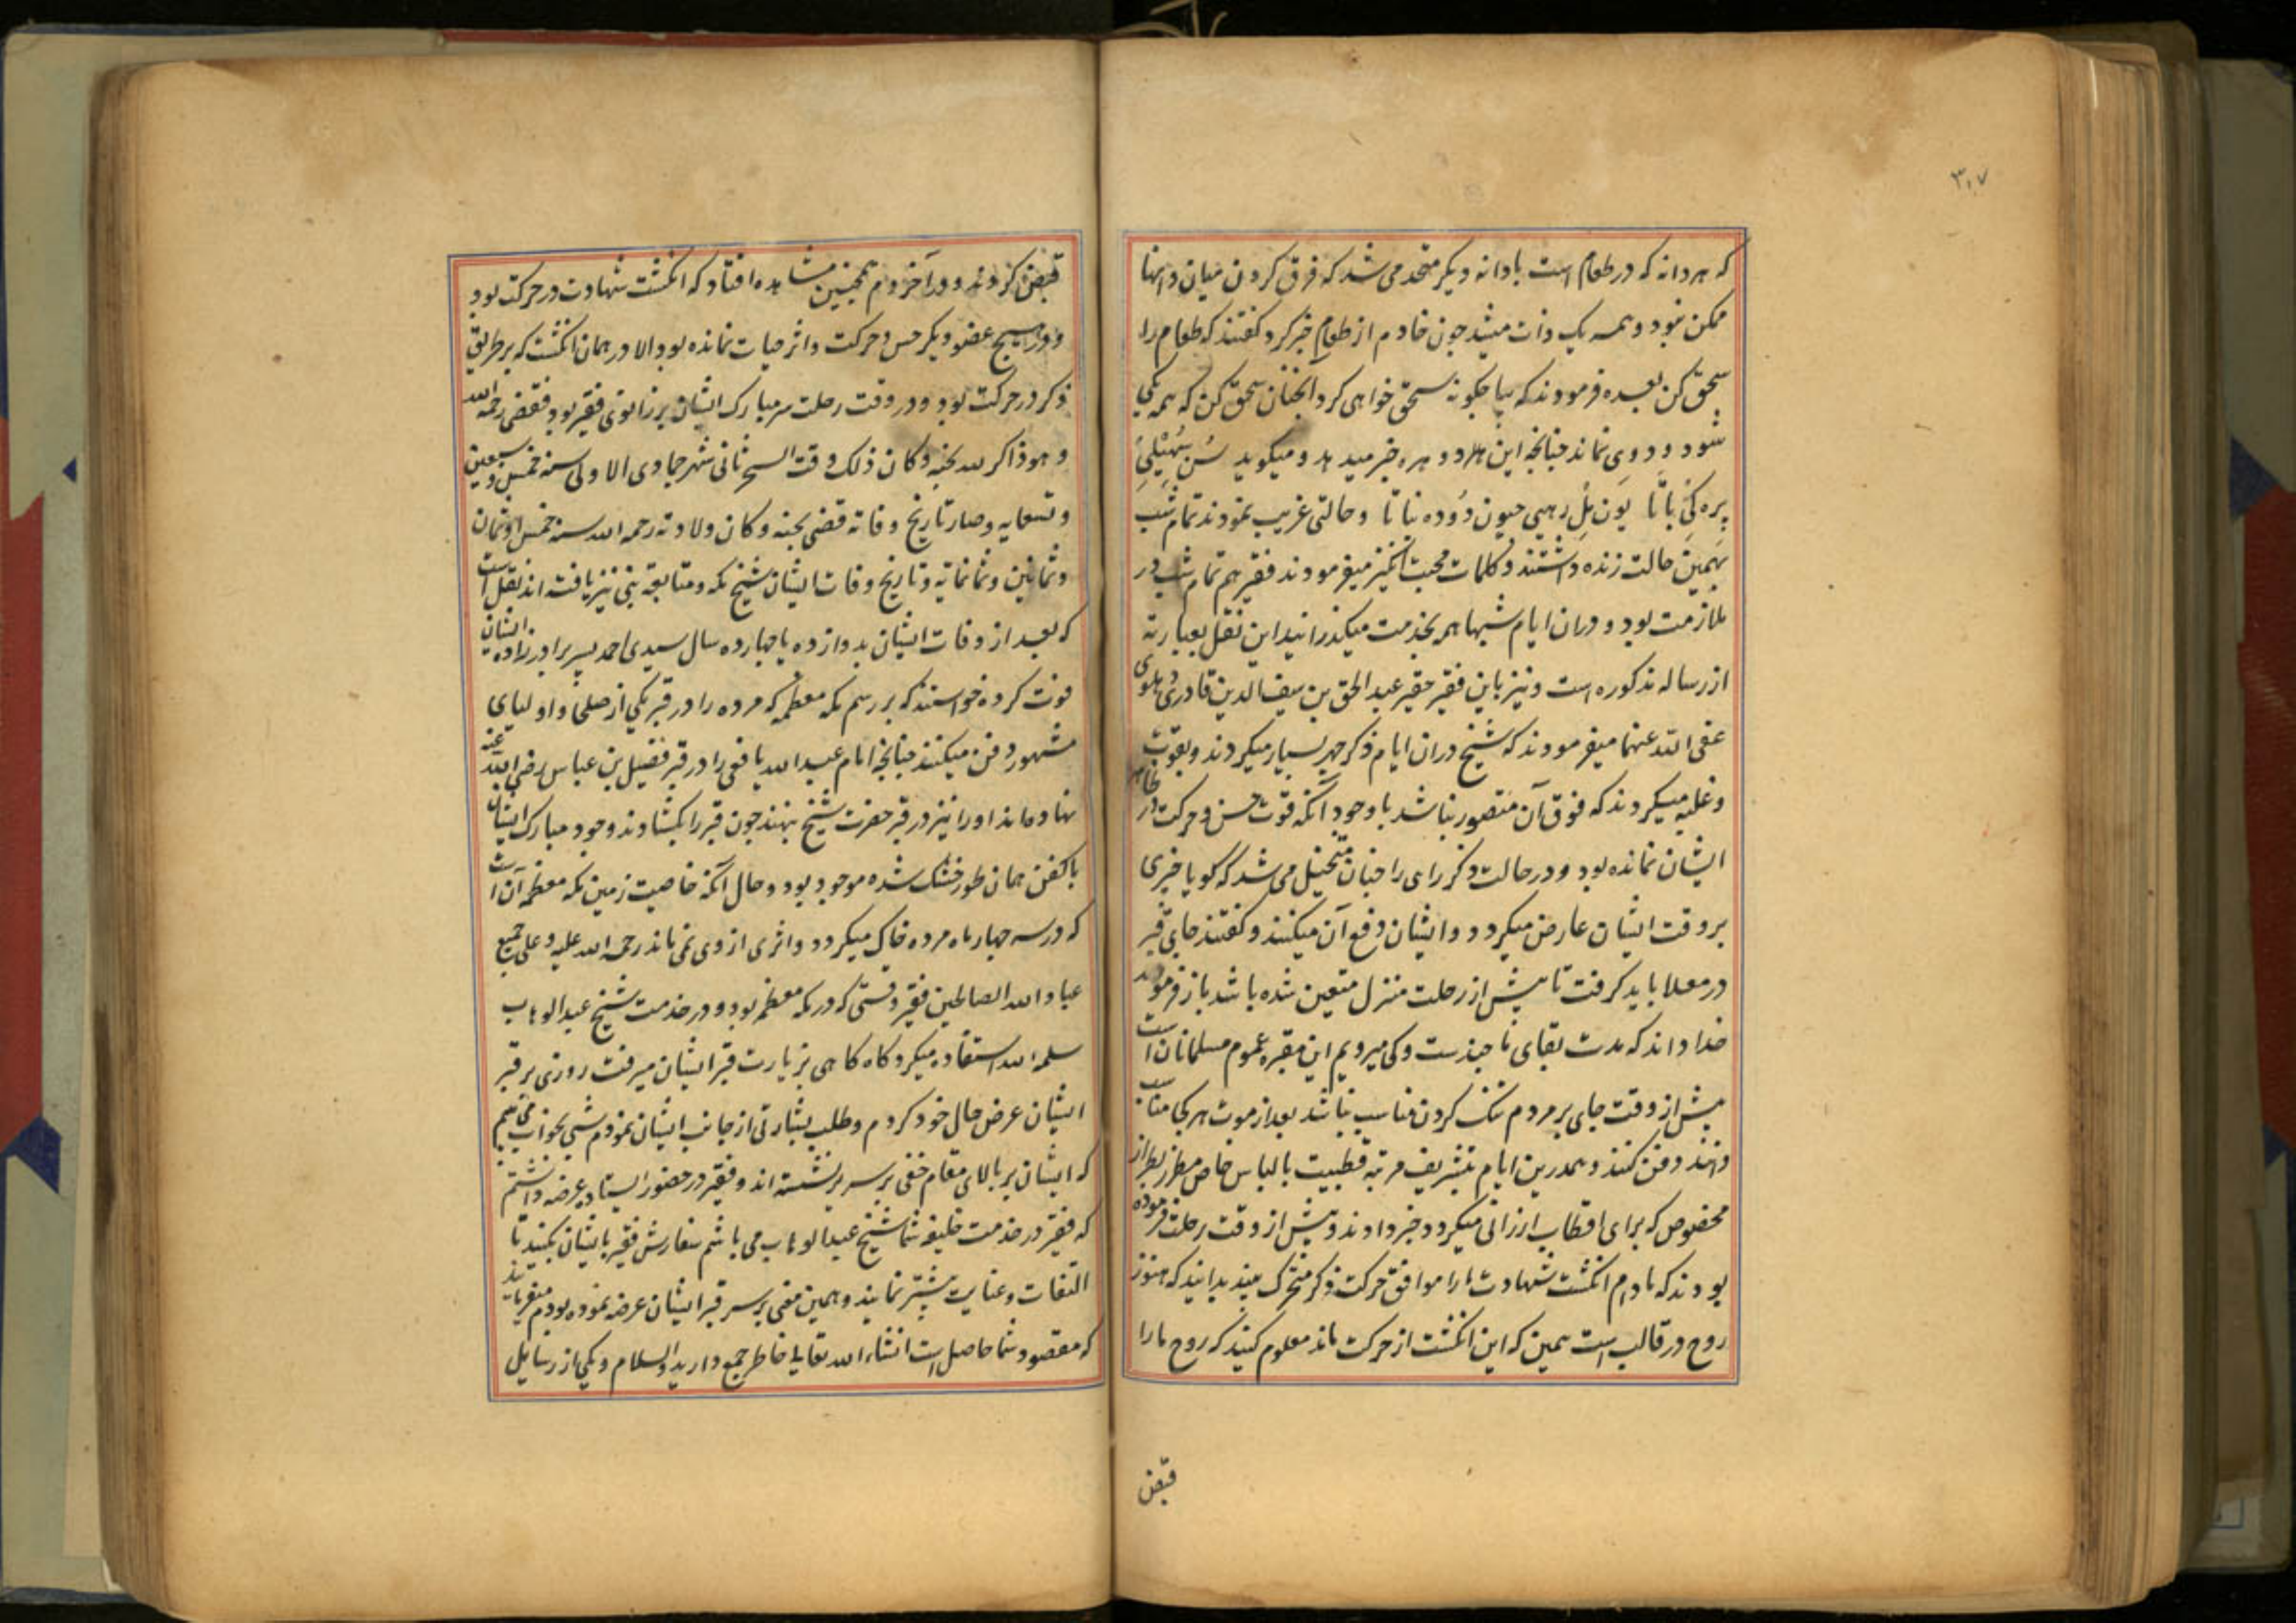 ۳۰۷
که هر دانه که در طعام است بادانه دیکر متحد می شد که فرق کردن میان دانها
ممکن نبود و همه یک ذات میشد چون خادم از طعام خبر کرد کفتند که طعام را
سحق کن بعده فرمودند که بیا چکونه سحق خواهی کرد آنچنان سحق کن که همه یکی
شود و دوی نماند چنانچه این دوهره خبر میدهد و میکوید سُن سُهیلی
پره کی باتا یون مل رهیی جیون دوده نباتا و حالتی غریب نمودند تمام شب
بهمین حالت زنده داشتند و کلمات محبت انکیز میفرمودند فقیر هم تمام شب در
ملازمت بود و دران ایام شبها هم بخدمت میکذرانید این نقل بعبارته
از رساله مذکوره است و نیز باین فقیر حقیر عبد الحق بن سیف الدین قادری دهلوی
عفی الله عنهما میفرمودند که شیخ دران ایام ذکر جهر بسیار میکردند و بقوت
و غلبه میکردند که فوق آن متصور نباشد با وجود آنکه قوت حس و حرکت در ظاهر
ایشان نمانده بود و در حالت ذکر رای را چنان متخیل می شد که کویا چیزی
بر وقت ایشان عارض میکردد و ایشان دفع آن میکنند و کفتند جای قبر
در معلا باید کرفت تا پیش از رحلت منزل متعین شده باشد باز فرمودند
خدا داند که مدت بقای تا چندست و کی میرویم این مقبره عموم مسلمانان است
پیش از وقت جای بر مردم تنک کردن مناسب نباشد بعد از موت هر کجا مناسب
دانند دفن کنند و همدرین ایام بتشریف مرتبه قطبیت بالباس خاص مطرز بطراز
مخصوص که برای اقطاب ارزانی میکردد خبر دادند و پیش از وقت رحلت فرموده
بودند که مادام انکشت شهادت مارا موافق حرکت ذکر متحرک بیند بدانید که هنوز
روح در قالب است همین که این انکشت از حرکت ماند معلوم کنید که روح مارا
قبض
قبض کردند و در آخر دم همچنین مشاهده افتاد که انکشت شهادت در حرکت بود
و در هیچ عضو دیکر حس و حرکت و اثر حیات نمانده بود الا در همان انکشت که بر طریق
ذکر در حرکت بود و در وقت رحلت سر مبارک ایشان بر زانوی فقیر بود فقضی رحمه الله
و هو ذاکر لله نحبه و کان ذلک وقت السحر ثانی شهر جمادی الاولی سنه خمس و سبعین
و تسعمایه و صار تاریخ وفاته قضی نحبه و کان ولادته رحمه الله سنه خمس او ثمان
و ثمانین و ثمانمائه و تاریخ وفات ایشان شیخ مکه و متابعة نبی نیز یافته اند نقل است
که بعد از وفات ایشان بدوازده یا چهارده سال سیدی احمد پسر برادرزاده ایشان
فوت کرده خواستند که بر رسم مکه معظمه که مرده را در قبر یکی از صلحا و اولیای
مشهور دفن میکنند چنانچه امام عبد الله یافعی را در قبر فضیل بن عیاض رضی الله عنه
نهاده اند او را نیز در قبر حضرت شیخ بنهند چون قبر را بکشادند وجود مبارک ایشان
با کفن همان طور خشک شده موجود بود و حال آنکه خاصیت زمین مکه معظمه آن است
که در سه چهار ماه مرده خاک میکردد و اثری از وی نمی ماند رحمة الله علیه و علی جمیع
عباد الله الصالحین فقیر وقتی که در مکه معظمه بود و در خدمت شیخ عبد الوهاب
سلمه الله استفاده میکرد کاه کاهی بزیارت قبر ایشان میرفت روزی بر قبر
ایشان عرض حال خود کردم و طلب بشارتی از جانب ایشان نمودم شبی بخواب می بینم
که ایشان بر بالای مقام حنفی بر سریر نشسته اند و فقیر در حضور ایستاده عرضه داشتم
که فقیر در خدمت خلیفه شما شیخ عبد الوهاب می باشم سفارش فقیر بایشان بکنید تا
التفات و عنایت بیشتر نمایند و همین معنی بر سر قبر ایشان عرضه نموده بودم میفرمایند
که مقصود شما حاصل است انشاء الله تعالی خاطر جمع دارید والسلام و یکی از رسایل